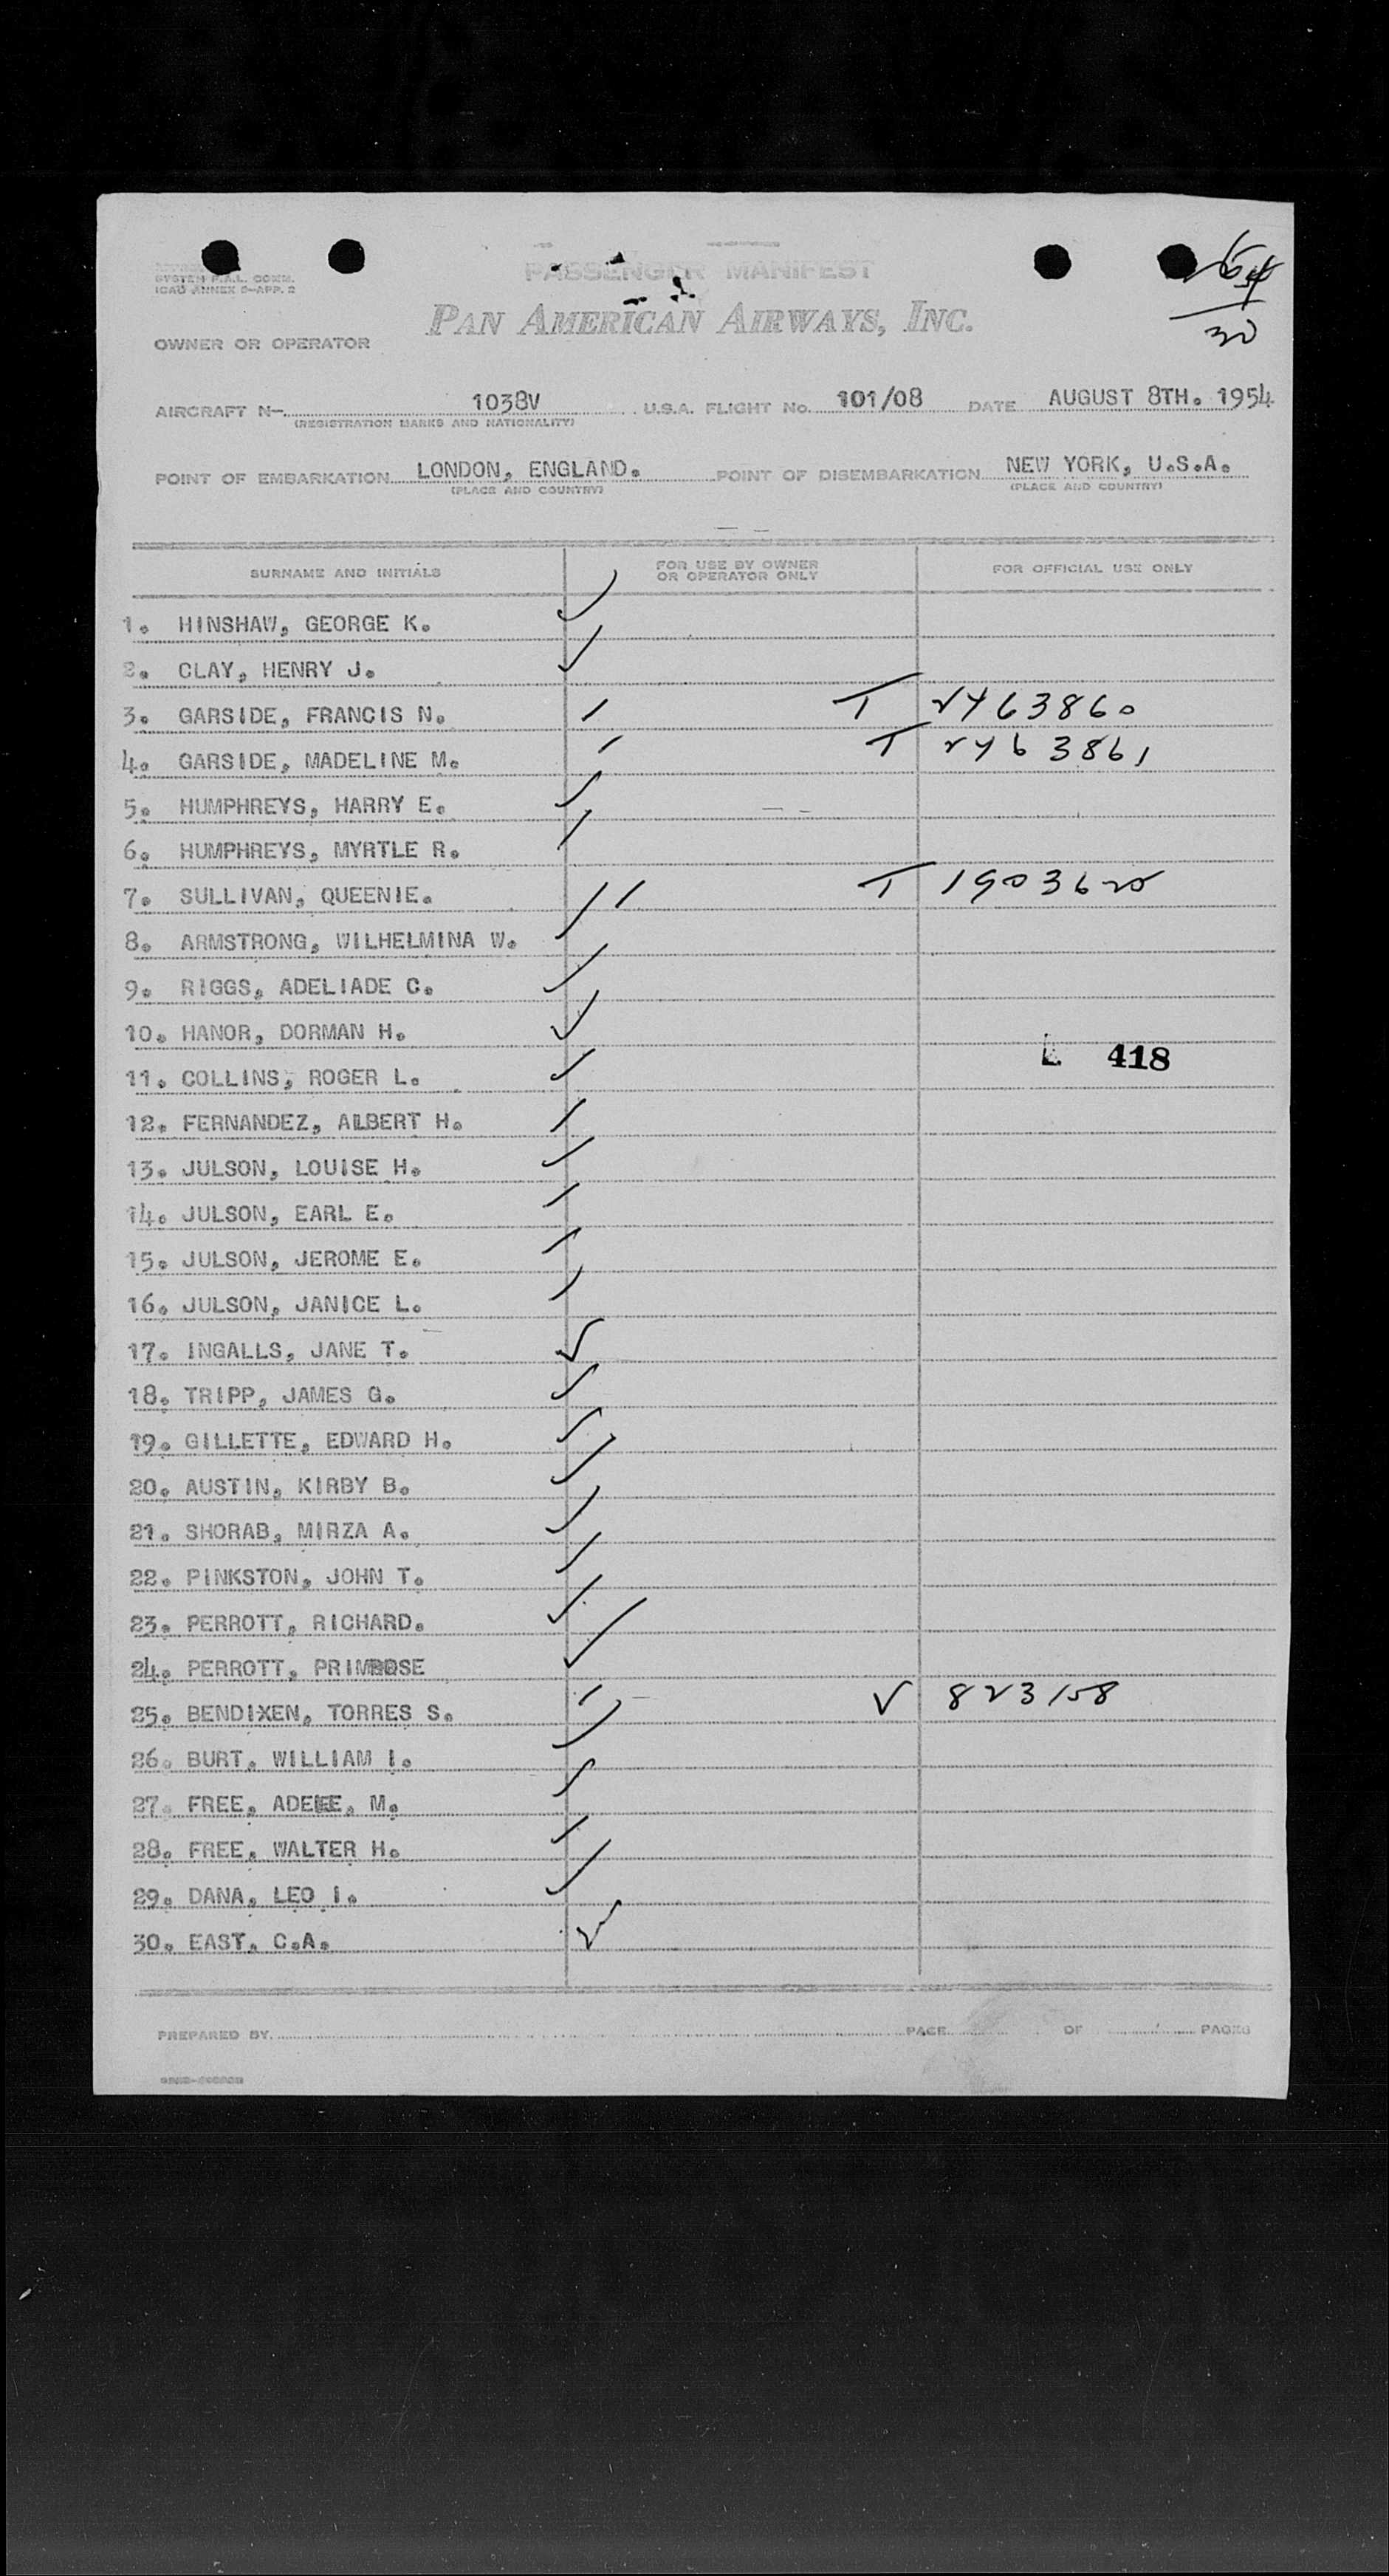 SYSTEM P.A.L. COMM.
ICAO ANNEX 9-APP. 2
PASSENGER MANIFEST
PAN AMERICAN AIRWAYS, INC.
30
OWNER OR OPERATOR
AIRCRAFT N- 1038V U.S.A. FLIGHT No. 101/08 DATE AUGUST 8TH. 1954
(REGISTRATION MARKS AND NATIONALITY)
POINT OF EMBARKATION LONDON, ENGLAND. POINT OF DISEMBARKATION NEW YORK, U.S.A.
(PLACE AND COUNTRY) (PLACE AND COUNTRY)
SURNAME AND INITIALS FOR USE BY OWNER OR OPERATOR ONLY FOR OFFICIAL USE ONLY
1. HINSHAW, GEORGE K.
2. CLAY, HENRY J.
3. GARSIDE, FRANCIS N. T V463860
4. GARSIDE, MADELINE M. T V463861
5. HUMPHREYS, HARRY E.
6. HUMPHREYS, MYRTLE R.
7. SULLIVAN, QUEENIE. T
8. ARMSTRONG, WILHELMINA W.
9. RIGGS, ADELIADE C.
10. HANOR, DORMAN H.
418
11. COLLINS, ROGER L.
12. FERNANDEZ, ALBERT H.
13. JULSON, LOUISE H.
14. JULSON, EARL E.
15. JULSON, JEROME E.
16. JULSON, JANICE L.
17. INGALLS, JANE T.
18. TRIPP, JAMES G.
19. GILLETTE, EDWARD H.
20. AUSTIN, KIRBY B.
21. SHORAB, MIRZA A.
22. PINKSTON, JOHN T.
23. PERROTT, RICHARD.
24. PERROTT, PRIMROSE
25. BENDIXEN, TORRES S. V 823158
26. BURT, WILLIAM I.
27. FREE, ADELE, M.
28. FREE, WALTER H.
29. DANA, LEO I.
30. EAST, C.A.
PREPARED BY PAGE OF PAGES